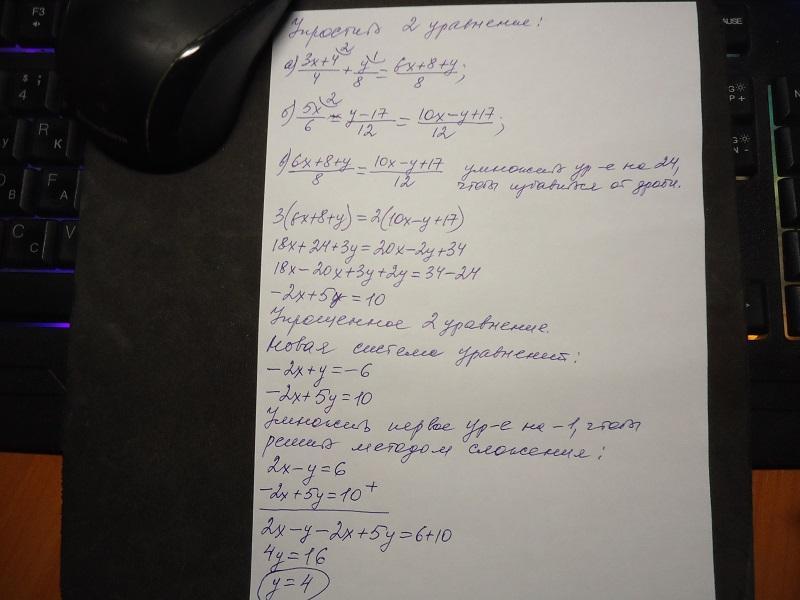 Упростить 2 уравнение:
а) (3x+4)/4 + y/8 = (6x+8+y)/8;
б) 5x/6 - (y-17)/12 = (10x-y+17)/12;
в) (6x+8+y)/8 = (10x-y+17)/12 умножить ур-е на 24,
чтобы избавиться от дроби.
3(6x+8+y)=2(10x-y+17)
18x+24+3y=20x-2y+34
18x-20x+3y+2y=34-24
-2x+5y=10
Упрощенное 2 уравнение.
Новая система уравнений:
-2x+y=-6
-2x+5y=10
Умножить первое ур-е на -1, чтобы
решить методом сложения:
2x-y=6
-2x+5y=10 +
2x-y-2x+5y=6+10
4y=16
y=4